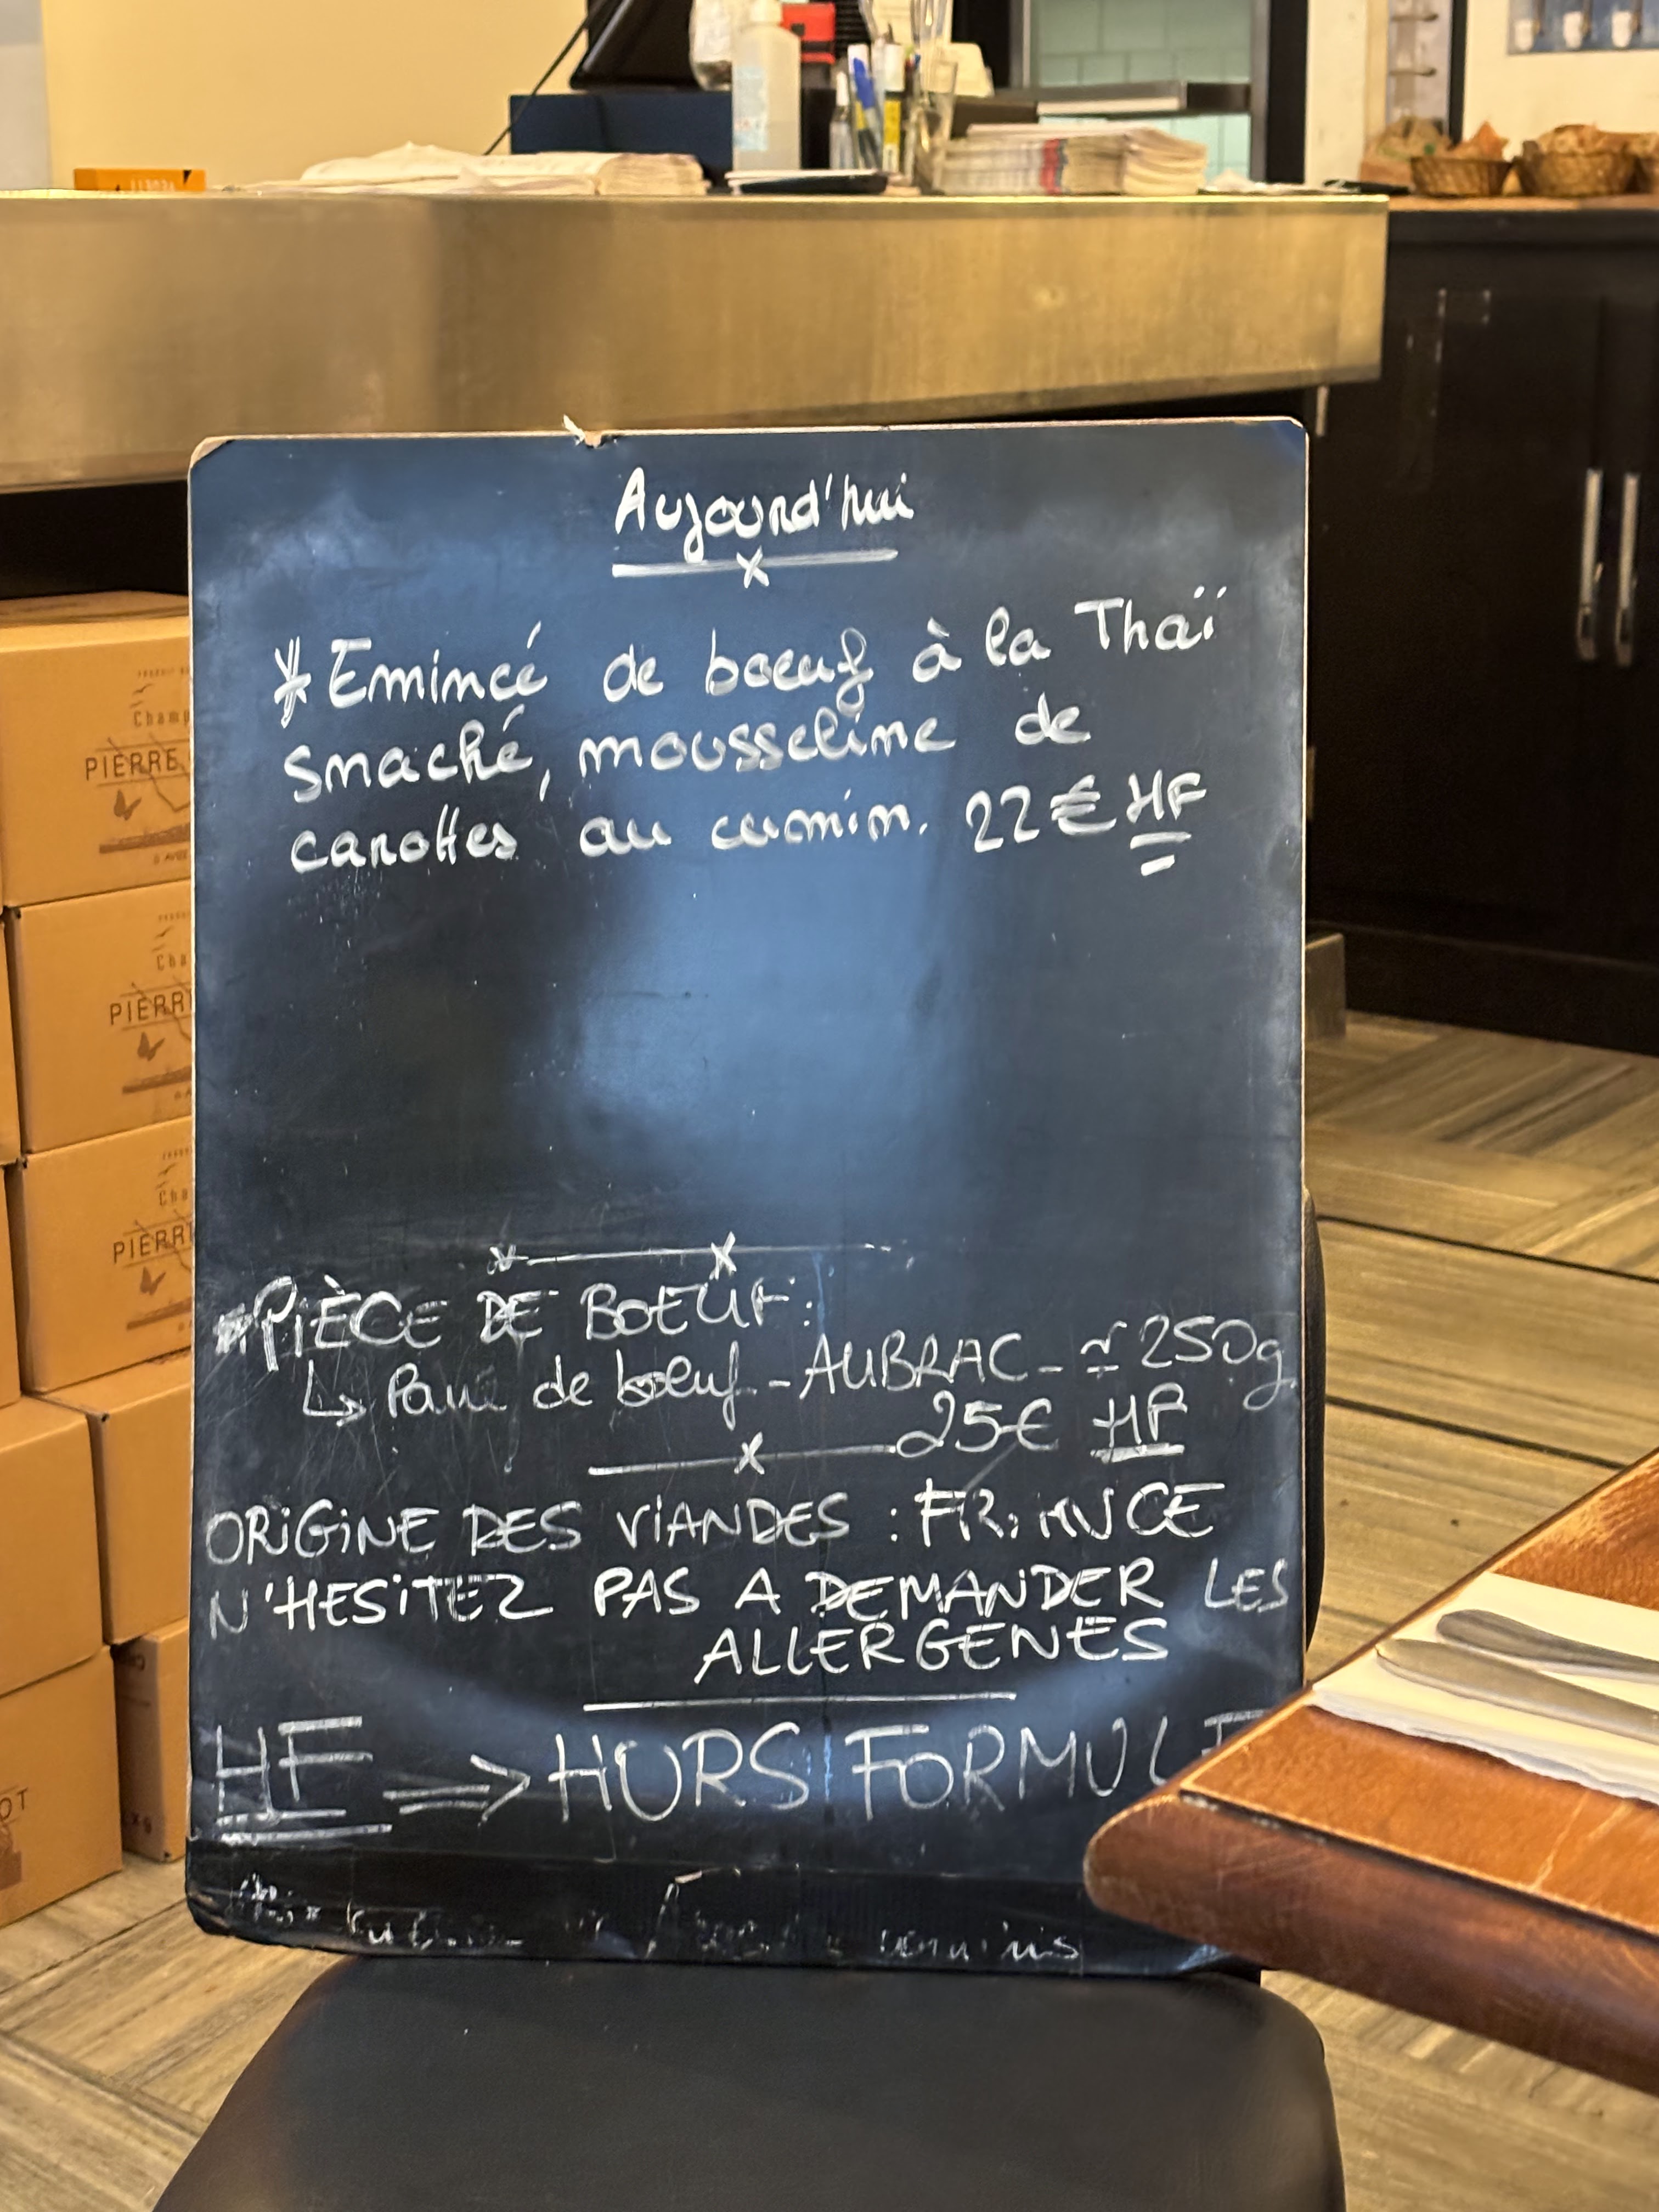 Aujourd'hui
* Emincé de boeuf à la Thaï
Smaché, mousseline de
carottes au cumin. 22€ HF
PIÈCE DE BOEUF :
↳ Pavé de boeuf - AUBRAC - ≃ 250g
25€ HF
ORIGINE DES VIANDES : FRANCE
N'HESITEZ PAS A DEMANDER LES
ALLERGENES
HF => HORS FORMULE
PIERRE
PIERR
PIERR